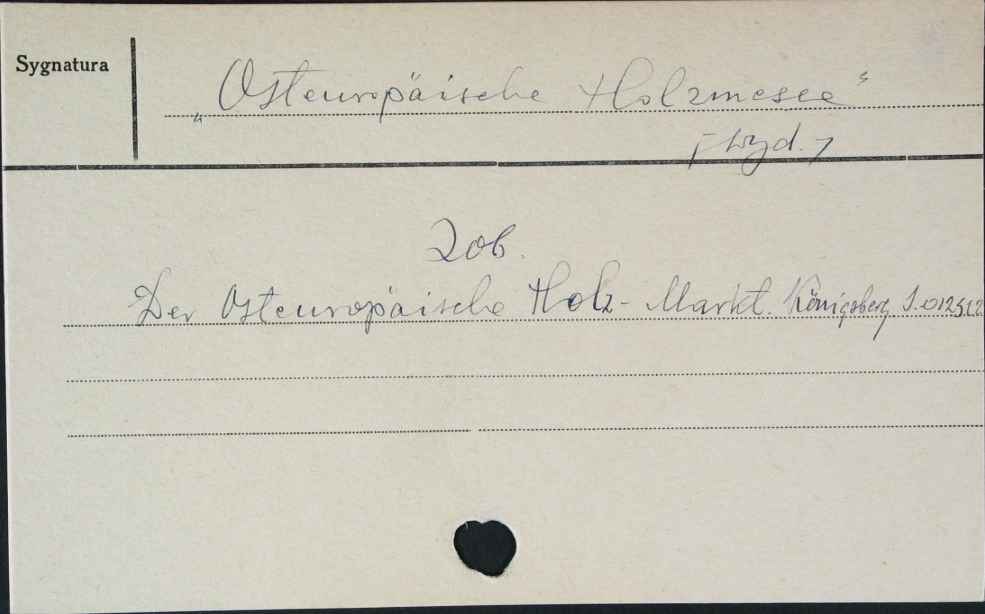 Sygnatura
„Osteuropäische Holzmesse"
[wyd.]
Zob.
Der Osteuropäische Holz-Markt. Königsberg